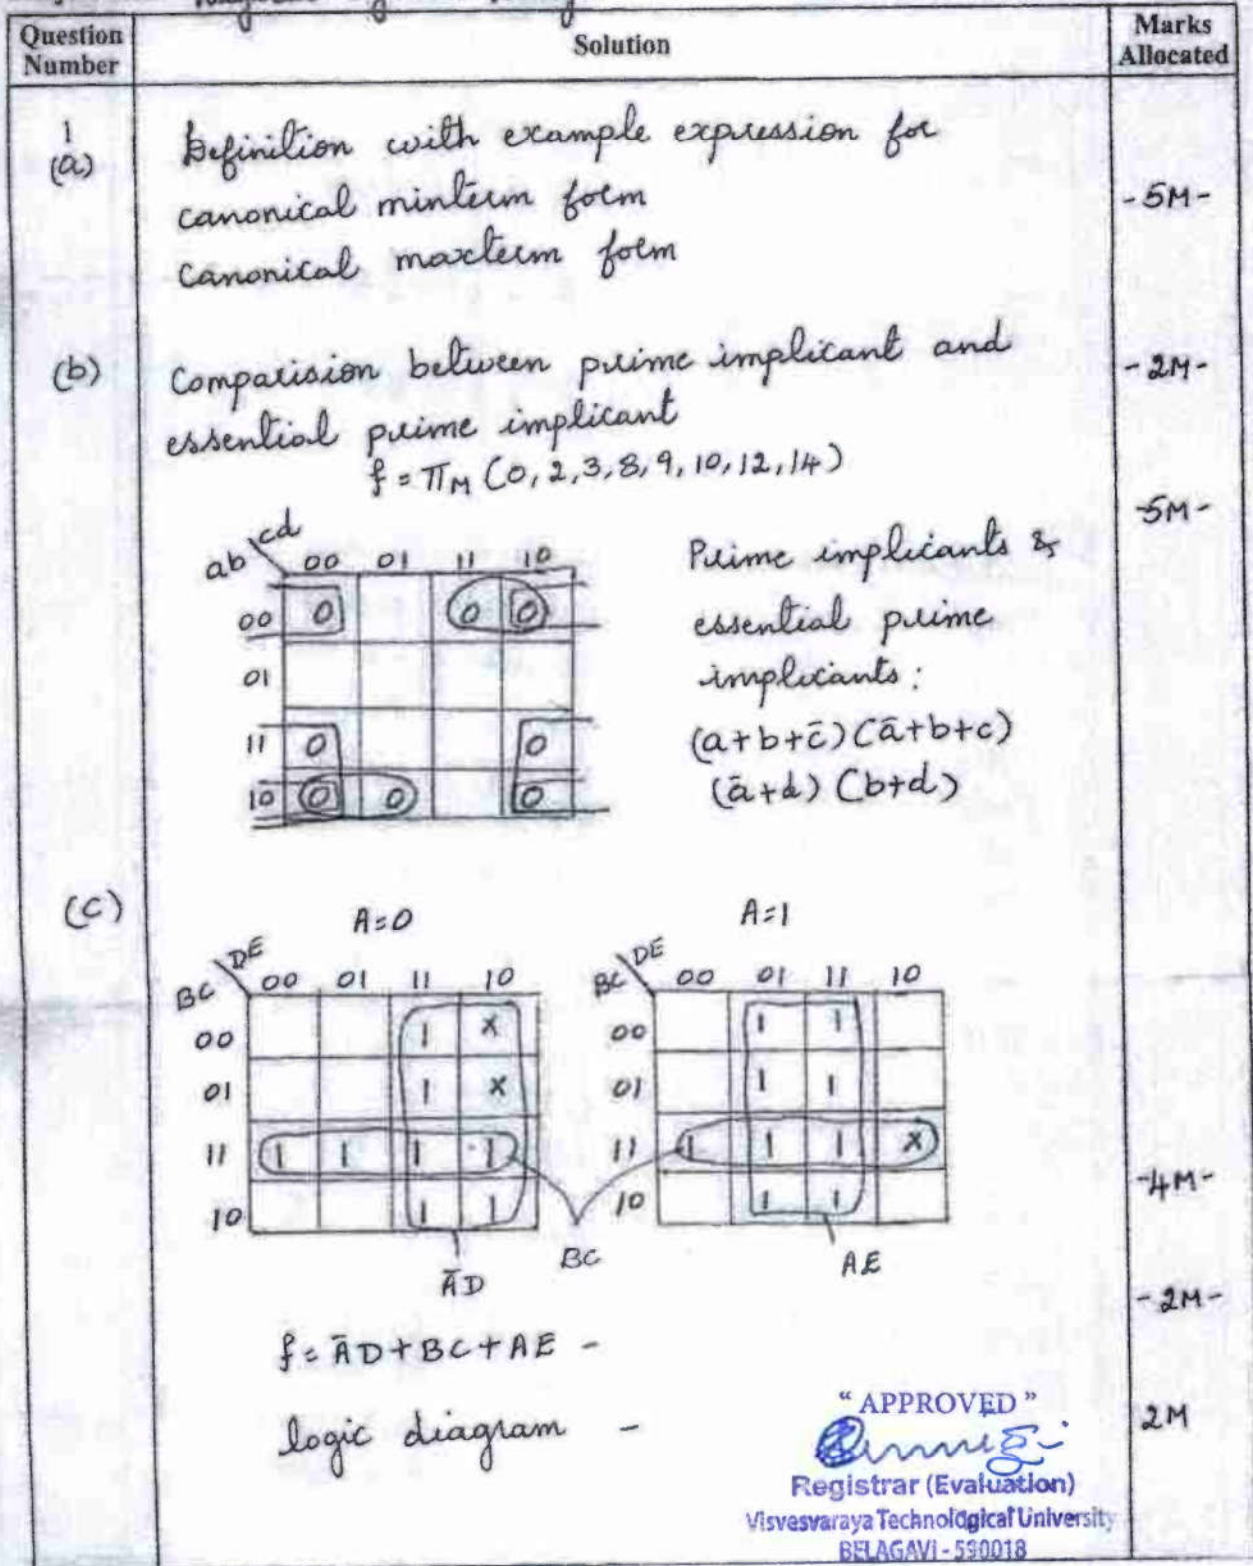 Question Number
Solution
Marks Allocated
1
(a)
Definition with example expression for
canonical minterm form
-5M-
canonical maxterm form
(b)
Comparision between prime implicant and
-2M-
essential prime implicant
f = πM (0, 2, 3, 8, 9, 10, 12, 14)
-5M-
ab cd 00 01 11 10
00 0 0 0
01
11 0 0
10 0 0 0
Prime implicants &
essential prime
implicants:
(a+b+c̄)(ā+b+c)
(ā+d) (b+d)
(c)
A=0
A=1
BC DE 00 01 11 10
00 1 x
01 1 x
11 1 1 1 1
10 1 1
ĀD
BC
BC DE 00 01 11 10
00 1 1
01 1 1
11 1 1 1 x
10 1 1
AE
-4M-
f = ĀD+BC+AE -
-2M-
logic diagram -
2M
“ APPROVED ”
Registrar (Evaluation)
Visvesvaraya Technological University
BELAGAVI - 590018